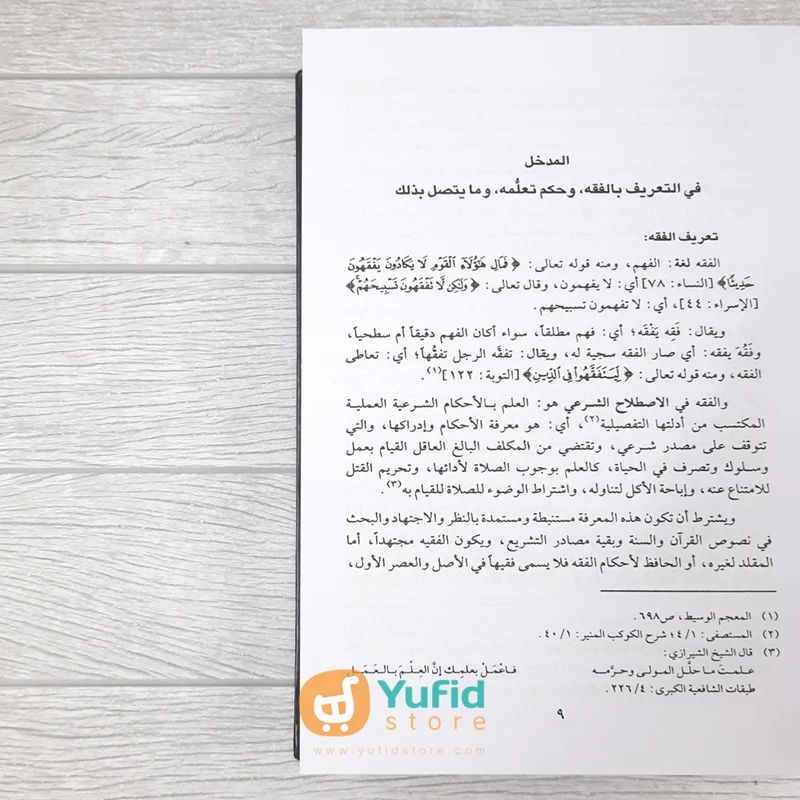 المدخل
في التعريف بالفقه، وحكم تعلُّمه، وما يتصل بذلك
تعريف الفقه:
الفقه لغة: الفهم، ومنه قوله تعالى: ﴿ فَمَالِ هَٰٓؤُلَآءِ ٱلْقَوْمِ لَا يَكَادُونَ يَفْقَهُونَ
حَدِيثًا﴾ [النساء: ٧٨] أي: لا يفهمون، وقال تعالى: ﴿وَلَٰكِن لَّا نَفْقَهُونَ تَسْبِيحَهُمْ ۚ﴾
[الإسراء: ٤٤]، أي: لا تفهمون تسبيحهم.
ويقال: فَقِه يَفْقَه؛ أي: فهم مطلقاً، سواء أكان الفهم دقيقاً أم سطحياً،
وفَقُهَ يفقه: أي صار الفقه سجية له، ويقال: تفقَّه الرجل تفقُّهاً؛ أي: تعاطى
الفقه، ومنه قوله تعالى: ﴿ لِيَتَفَقَّهُوا۟ فِى ٱلدِّينِ﴾ [التوبة: ١٢٢](١).
والفقه في الاصطلاح الشرعي هو: العلم بالأحكام الشرعية العملية
المكتسب من أدلتها التفصيلية(٢)، أي: هو معرفة الأحكام وإدراكها، والتي
تتوقف على مصدر شرعي، وتقتضي من المكلف البالغ العاقل القيام بعمل
وسلوك وتصرف في الحياة، كالعلم بوجوب الصلاة لأدائها، وتحريم القتل
للامتناع عنه، وإباحة الأكل لتناوله، واشتراط الوضوء للصلاة للقيام به(٣).
ويشترط أن تكون هذه المعرفة مستنبطة ومستمدة بالنظر والاجتهاد والبحث
في نصوص القرآن والسنة وبقية مصادر التشريع، ويكون الفقيه مجتهداً، أما
المقلد لغيره، أو الحافظ لأحكام الفقه فلا يسمى فقيهاً في الأصل والعصر الأول،
(١) المعجم الوسيط، ص٦٩٨.
(٢) المستصفى: ٤/١؛ شرح الكوكب المنير: ٤٠/١.
(٣) قال الشيخ الشيرازي:
علمتَ ما حلَّل المولى وحرَّمه فاعْمَلْ بعلمِك إنَّ العِلْمَ بالعَمَلِ
طبقات الشافعية الكبرى: ٢٢٦/٤.
٩
Yufid
store
www.yufidstore.com